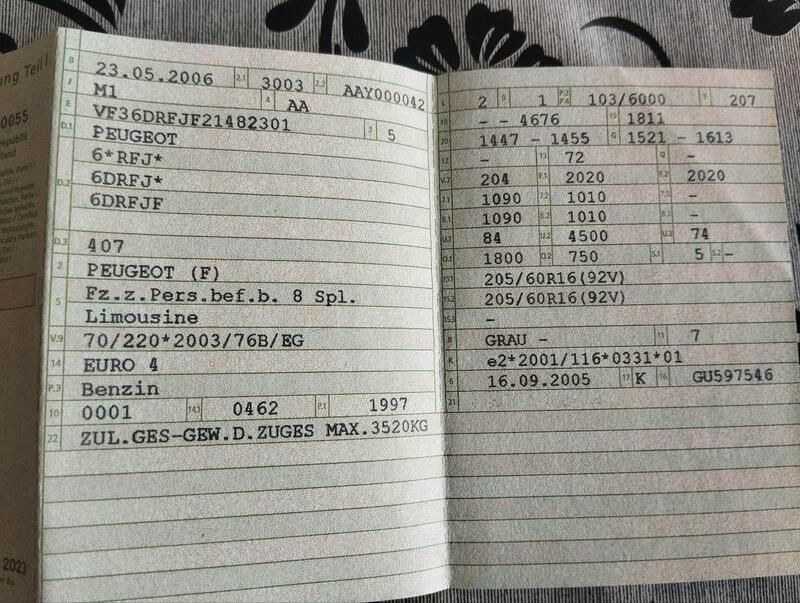 ung Teil I
0055
republik
land
B 23.05.2006 2.1 3003 2.2 AAY000042
J M1 4 AA
E VF36DRFJF21482301 3 5
D.1 PEUGEOT
6*RFJ*
D.2 6DRFJ*
6DRFJF
D.3 407
2 PEUGEOT (F)
5 Fz.z.Pers.bef.b. 8 Spl.
Limousine
V.9 70/220*2003/76B/EG
14 EURO 4
P.3 Benzin
10 0001 14.1 0462 P.1 1997
22 ZUL.GES-GEW.D.ZUGES MAX.3520KG
2023
L 2 9 1 P.2 P.4 103/6000 T 207
18 - - 4676 19 1811
20 1447 - 1455 G 1521 - 1613
12 - 13 72 Q -
V.7 204 F.1 2020 F.2 2020
7.1 1090 7.2 1010 7.3 -
8.1 1090 8.2 1010 8.3 -
U.1 84 U.2 4500 U.3 74
O.1 1800 O.2 750 S.1 5 S.2 -
15.1 205/60R16(92V)
15.2 205/60R16(92V)
15.3 -
R GRAU - 11 7
K e2*2001/116*0331*01
6 16.09.2005 17 K 16 GU597546
21